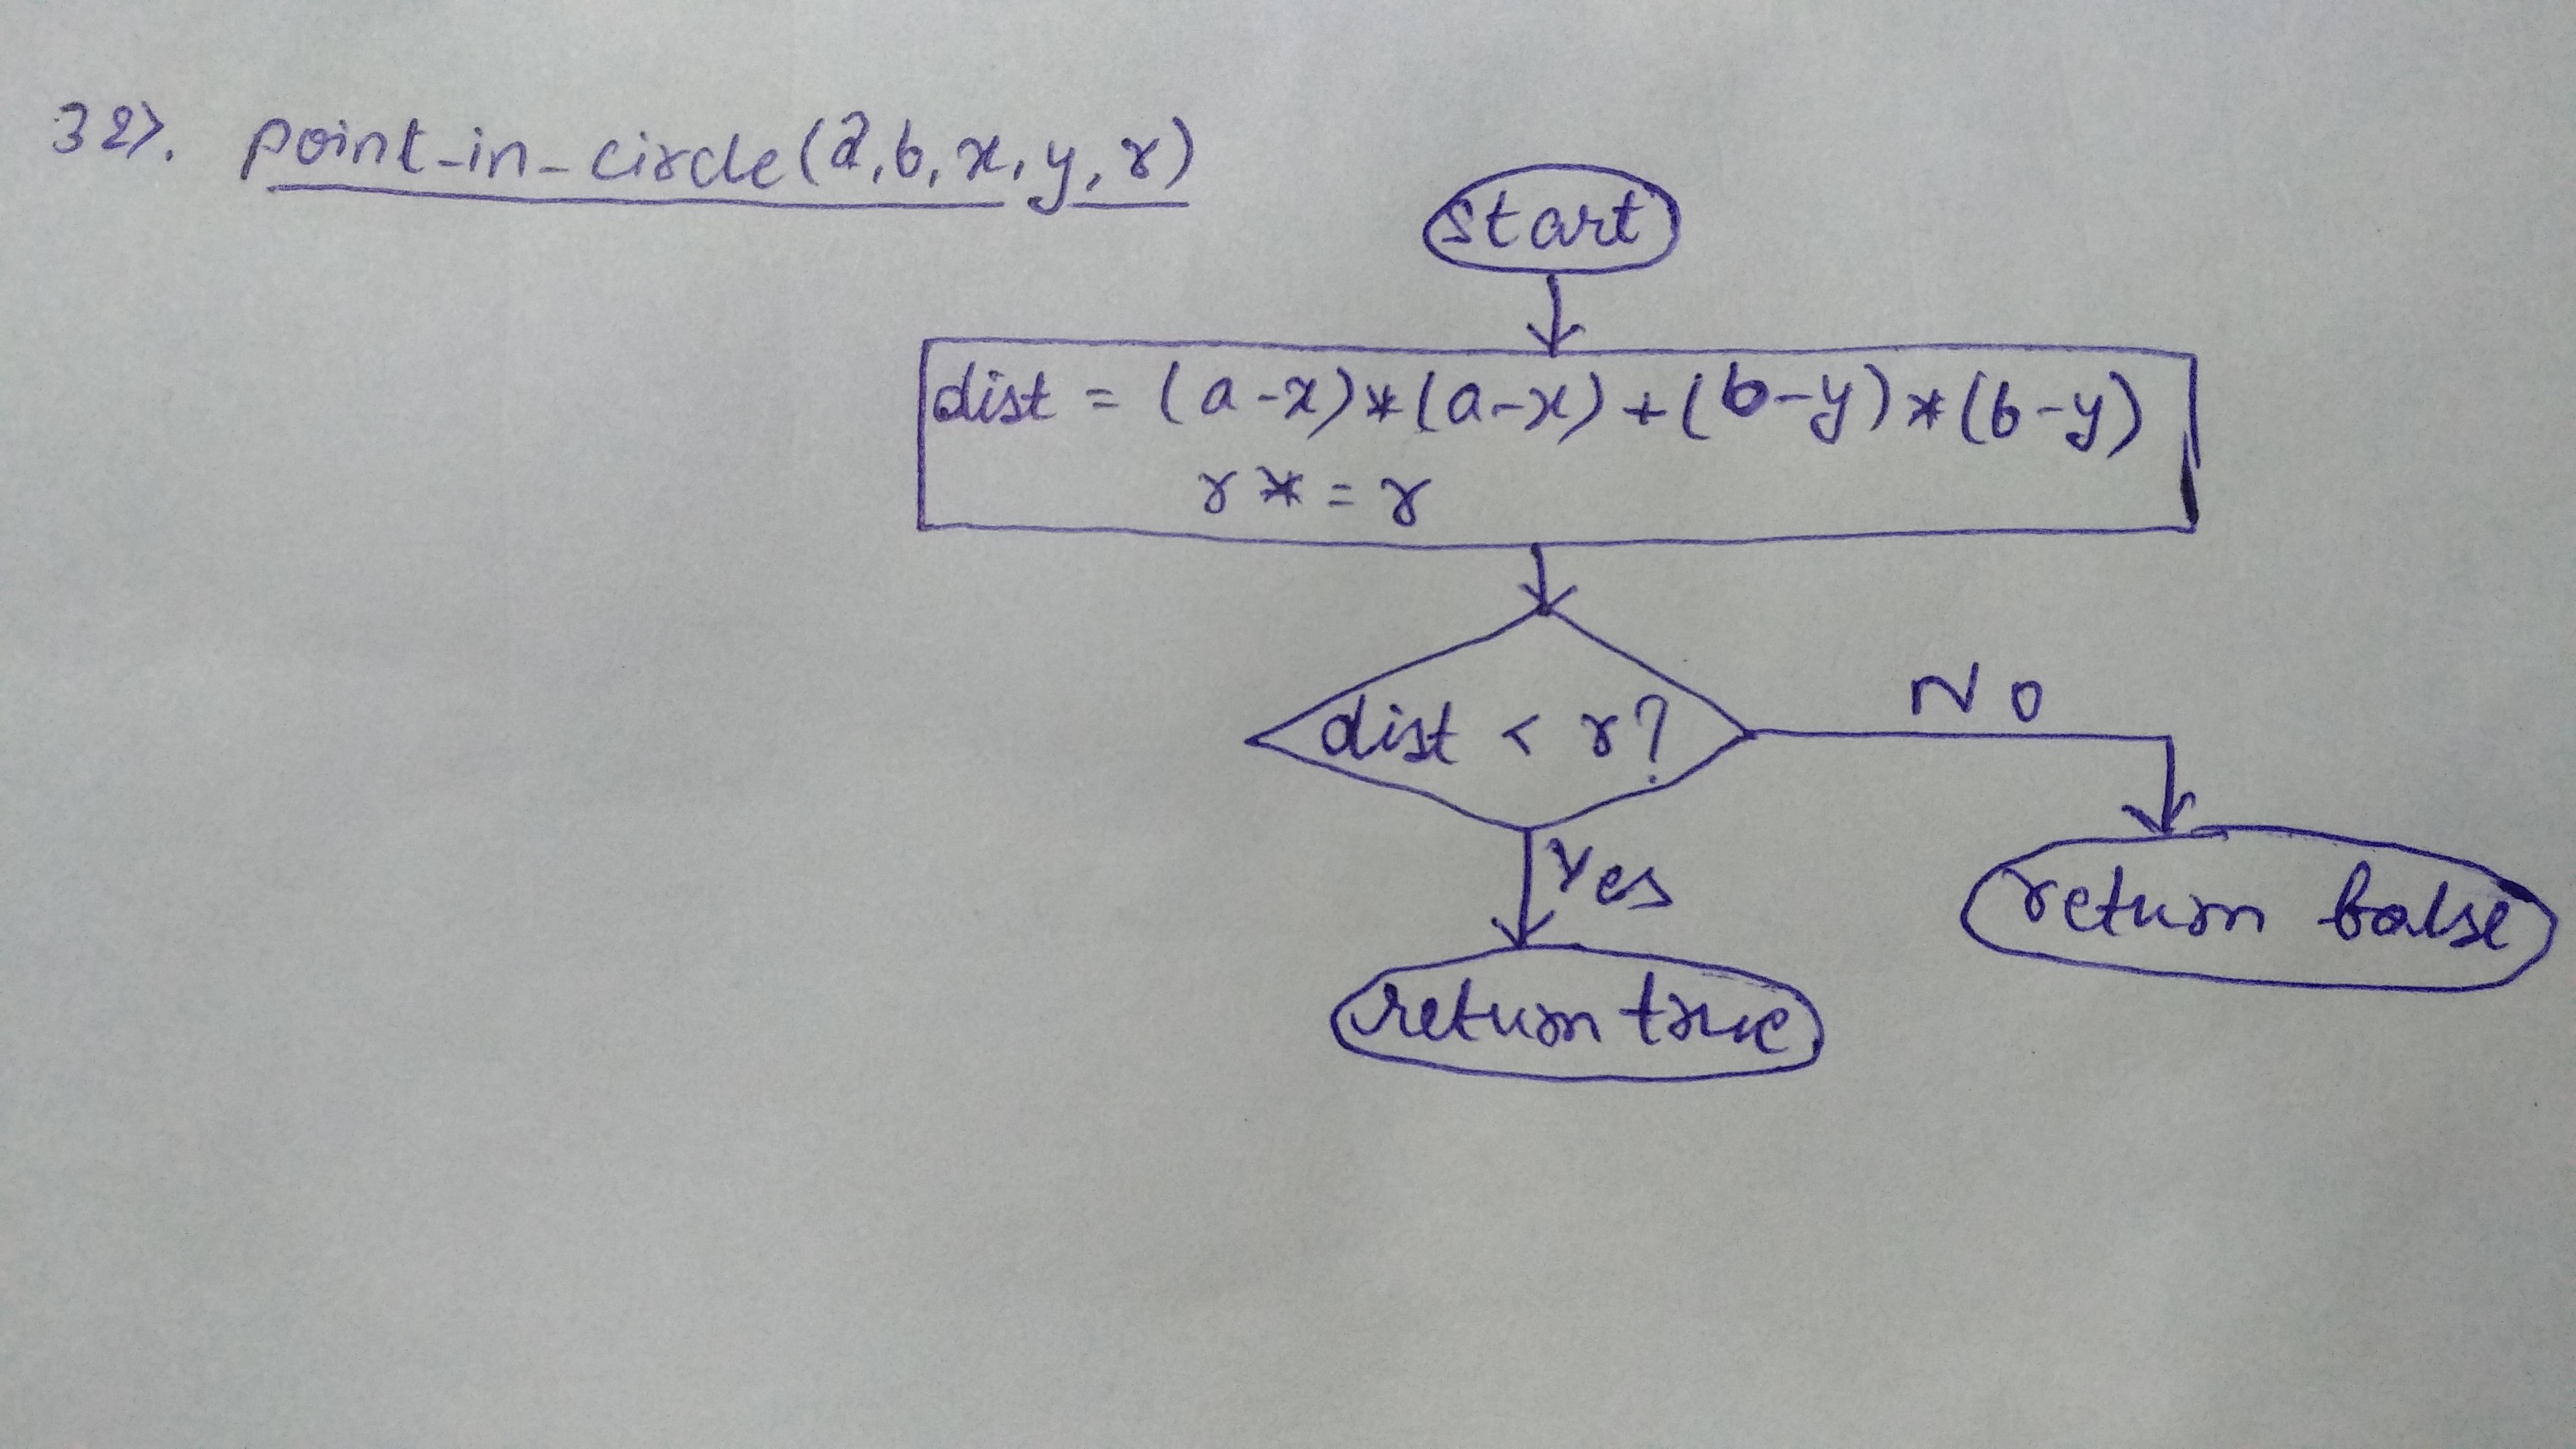 32). point-in-circle(a,b,x,y,r)
start
dist = (a-x)*(a-x)+(b-y)*(b-y)
r*=r
dist < r?
No
Yes
return false
return true